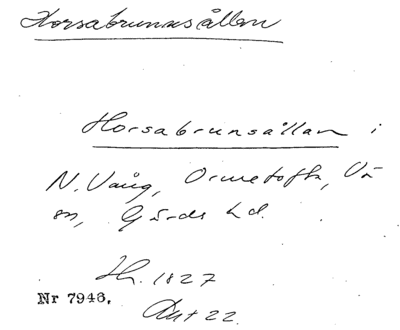 Horsabrunnsållan
Horsabrunsållan i
N. Vång, Ormetofta, Vå
en, Gärds hd.
Hr. 1827
Nr 7946. Akt 22.